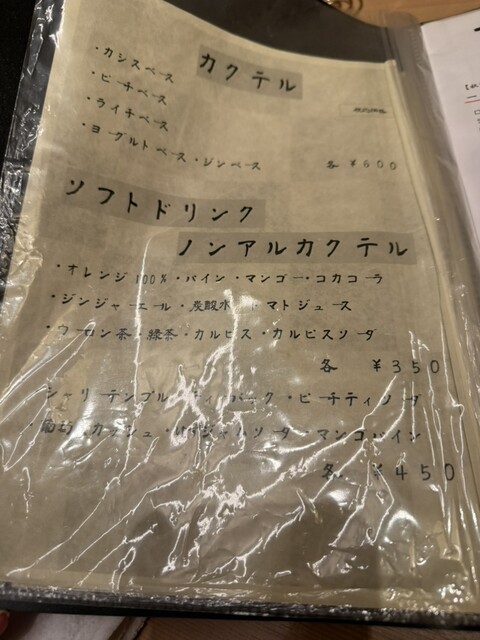 カクテル
・カシスベース
・ピーチベース
・ライチベース
・ヨーグルトベース・ジンベース
各 ¥600
ソフトドリンク
ノンアルカクテル
・オレンジ100%・パイン・マンゴー・コカコーラ
・ジンジャーエール・炭酸水・トマトジュース
・ウーロン茶・緑茶・カルピス・カルピスソーダ
各 ¥350
シャリーテンプル
・ピーチティソーダ
ソーダ マンゴパイン
各 ¥450